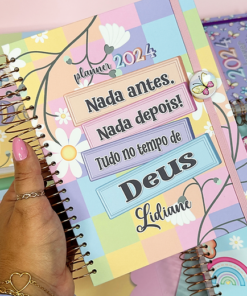 planner 2024
Nada antes.
Nada depois!
Tudo no tempo de
Deus
Lidiane